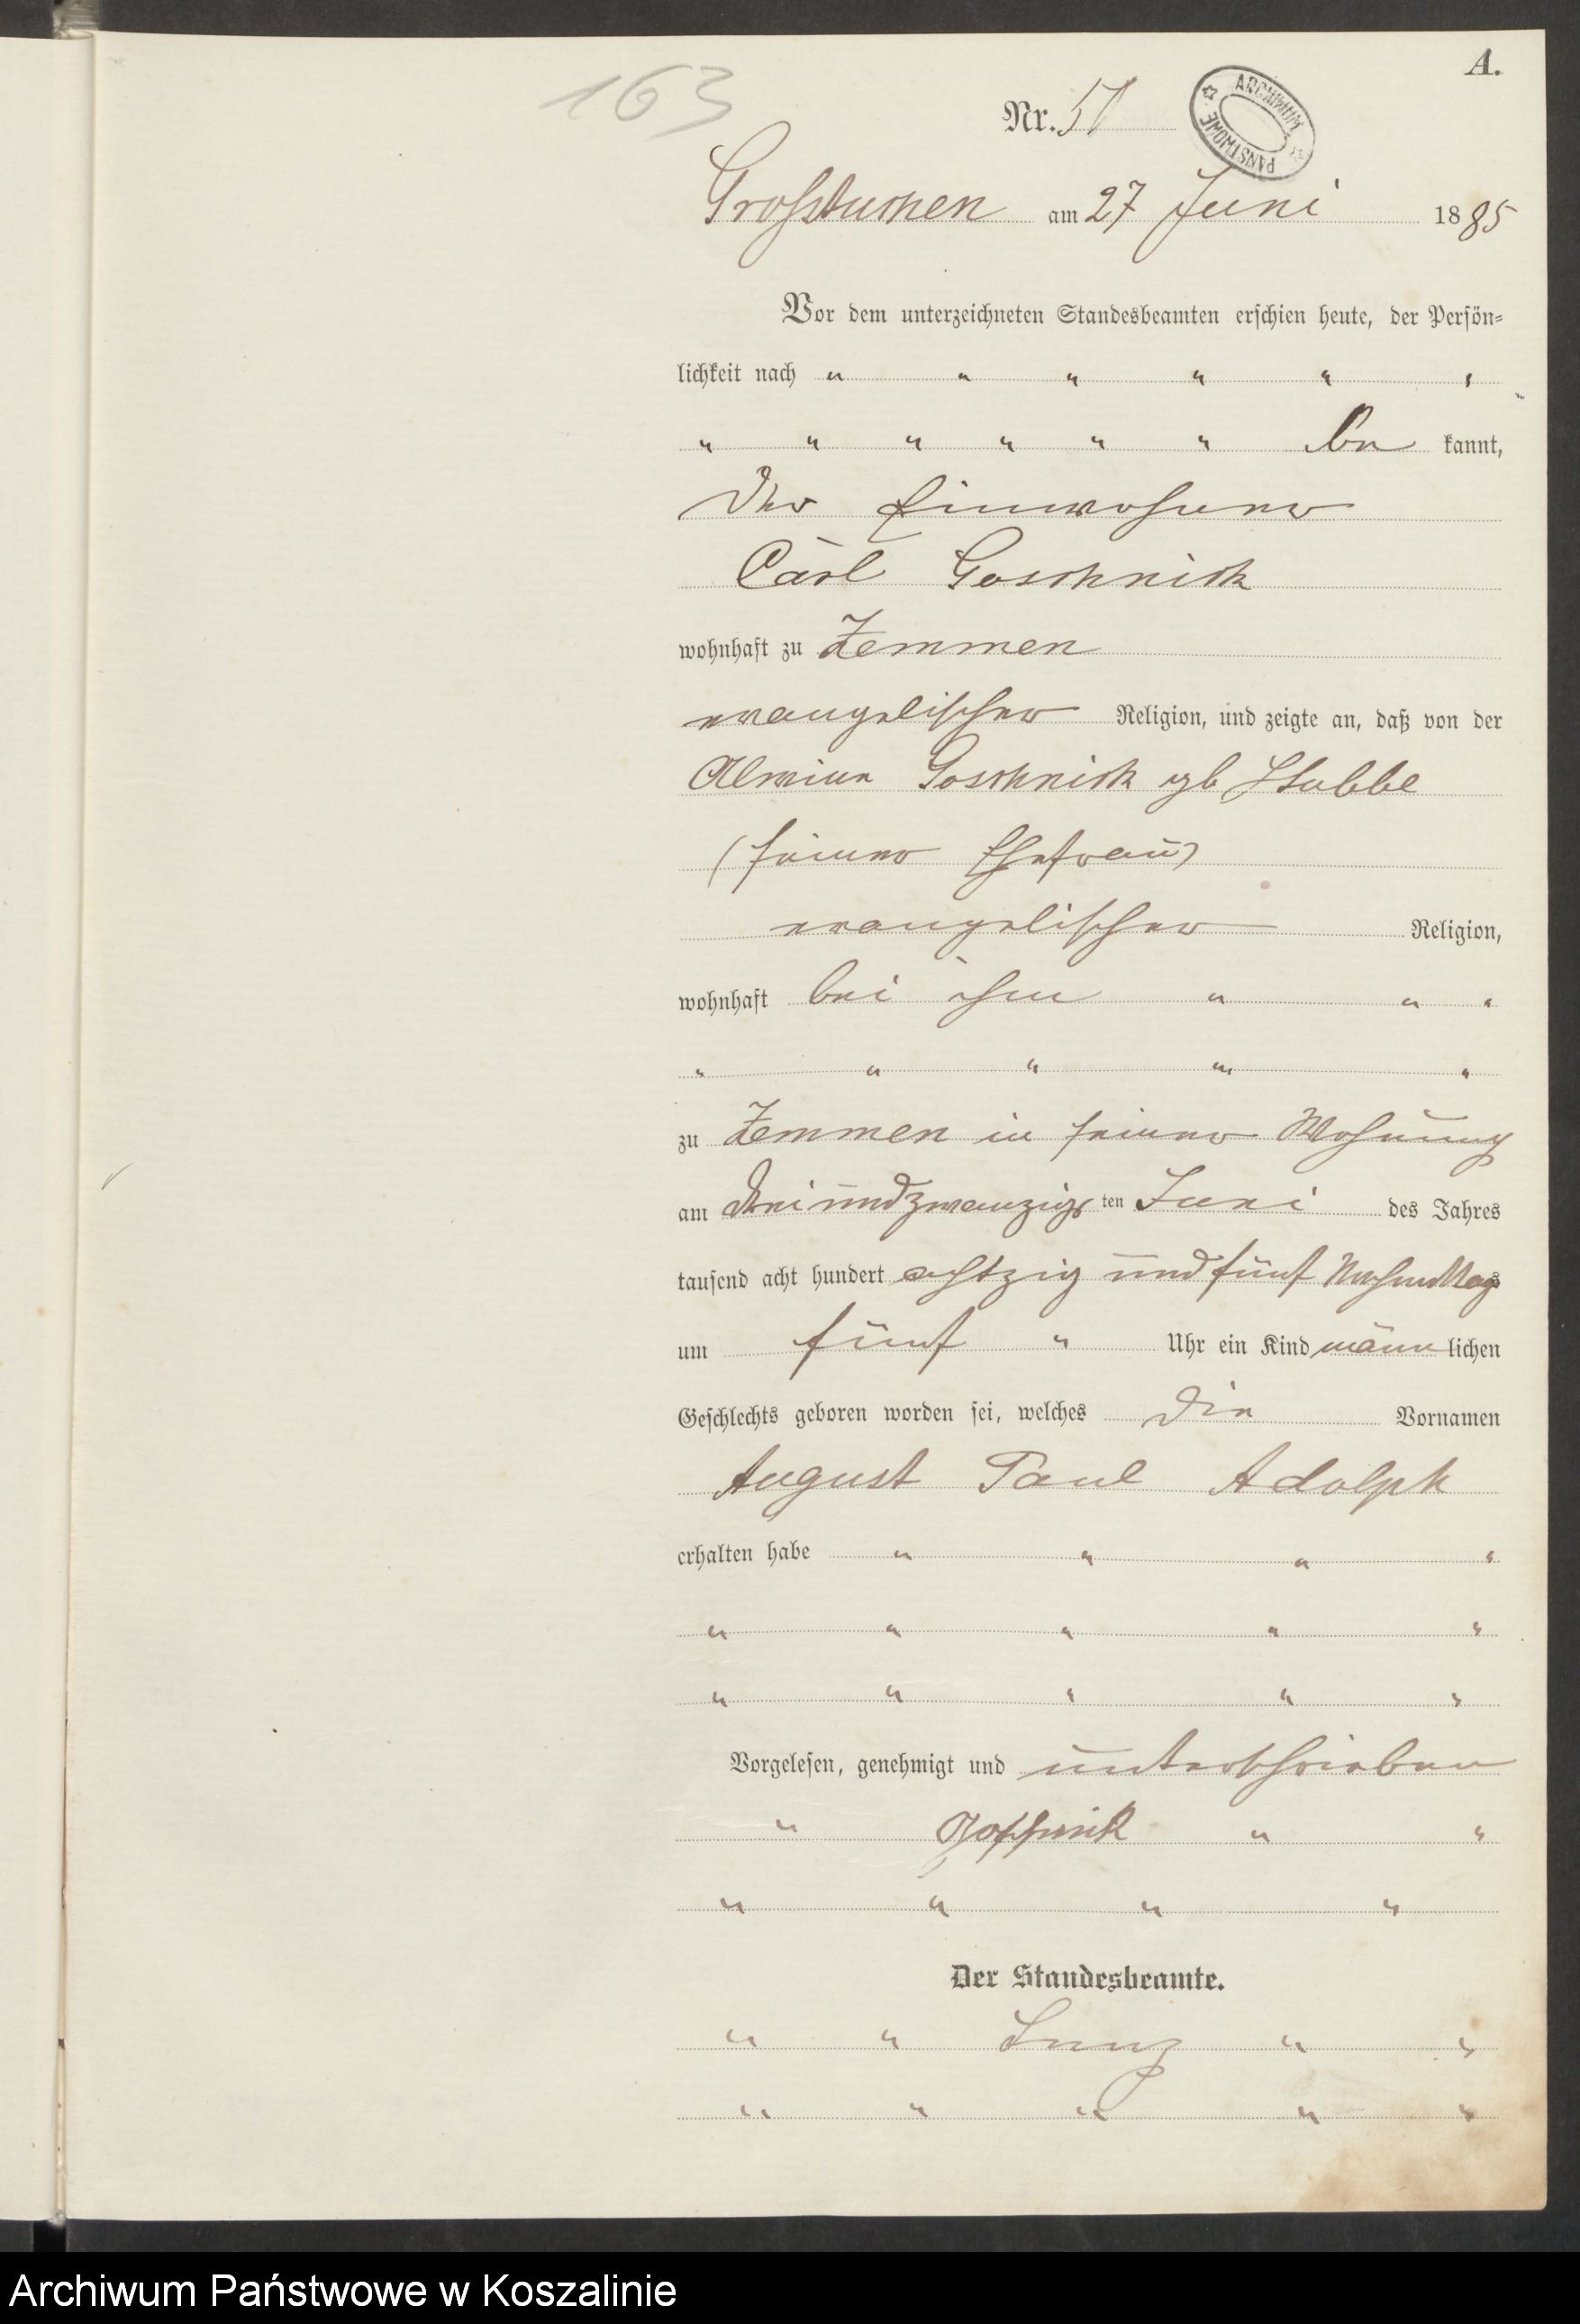 163
A.
Nr. 51
ARCHIWUM PAŃSTWOWE
Großtuchen am 27 Juni 1885
Vor dem unterzeichneten Standesbeamten erschien heute, der Persön-
lichkeit nach " " " " " "
" " " " " " be kannt,
der Einwohner
Carl Goschnick
wohnhaft zu Zemmen
evangelischer Religion, und zeigte an, daß von der
Alwine Goschnick gb Stubbe
(seiner Ehefrau)
evangelischer Religion,
wohnhaft bei ihm " " "
" " " " "
zu Zemmen in seiner Wohnung
am dreiundzwanzigsten Juni des Jahres
tausend acht hundert achtzig und fünf Nachmittags
um fünf " Uhr ein Kind männlichen
Geschlechts geboren worden sei, welches die Vornamen
August Paul Adolph
erhalten habe " " " "
" " " " "
" " " " "
Vorgelesen, genehmigt und unterschrieben
" Goschnik " "
" " " "
Der Standesbeamte.
" " " "
" " " " "
Archiwum Państwowe w Koszalinie